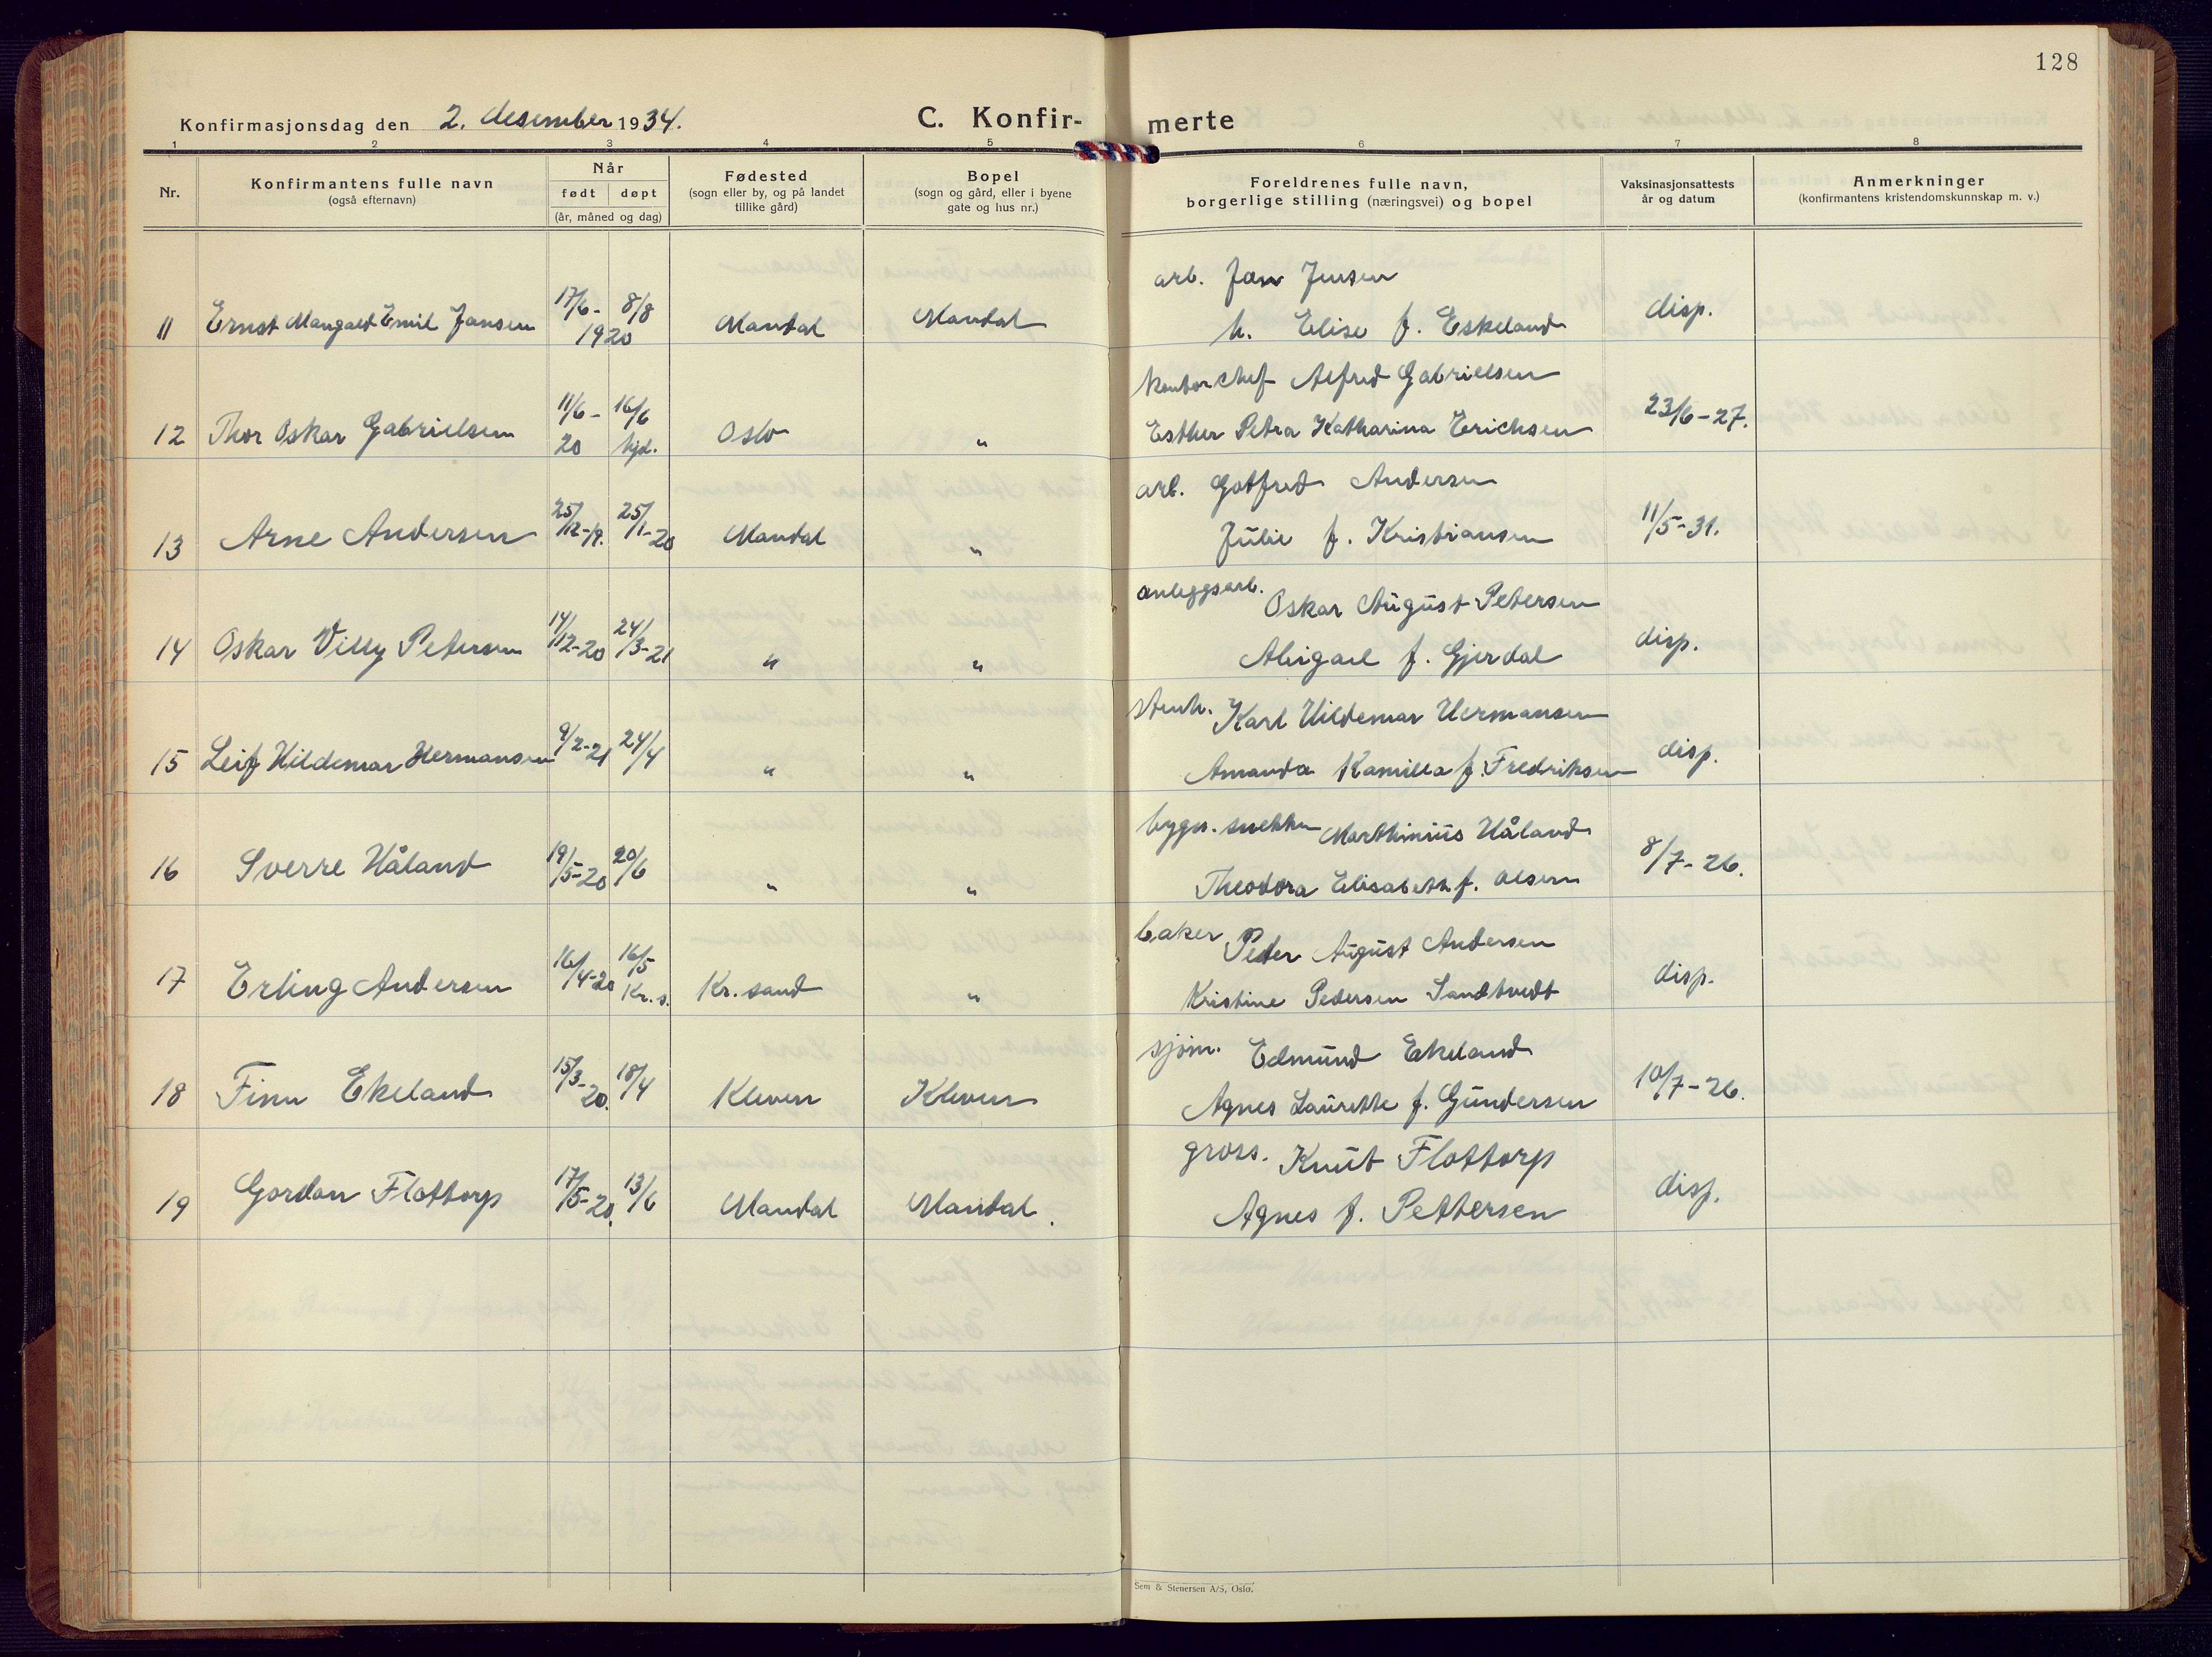 128
Konfirmasjonsdag den 2. desember 1934.
C. Konfir- merte
1 2 3 4 5 6 7 8
Nr.
Konfirmantens fulle navn
(også efternavn)
Når
født døpt
(år, måned og dag)
Fødested
(sogn eller by, og på landet
tillike gård)
Bopel
(sogn og gård, eller i byene
gate og hus nr.)
Foreldrenes fulle navn,
borgerlige stilling (næringsvei) og bopel
Vaksinasjonsattests
år og datum
Anmerkninger
(konfirmantens kristendomskunnskap m. v.)
arb. Jan Jensen
11 Ernst Mangald Emil Jansen 17/6- 8/8 1920 Mandal Mandal h. Elise f. Eskeland disp.
kontorchef Alfred Gabrielsen
12 Thor Oskar Gabrielsen 11/6- 20 16/6 hjd. Oslo " Esther Petra Katharina Erichsen 23/6-27.
arb. Gotfred Andersen
13 Arne Andersen 25/12-19. 25/1-20 Mandal " Julie f. Kristiansen 11/5-31.
anleggsarb. Oskar August Petersen
14 Oskar Villy Petersen 14/12-20 24/3-21 " " Abigael f. Gjerdal disp.
stenh. Karl Hildemar Hermansen
15 Leif Hildemar Hermansen 9/2-21 24/4 " " Amanda Kamilla f. Fredriksen disp.
bygn. snekker Marthinius Håland
16 Sverre Håland 19/5-20 20/6 " " Theodora Elisabeth f. Olsen 8/7-26.
baker Peder August Andersen
17 Erling Andersen 16/4-20 16/5 Kr. s. Kr. sand " Kristine Pedersen Sandtvedt disp.
sjøm. Edmund Ekeland
18 Finn Ekeland 15/3-20. 18/4 Kleven Kleven Agnes Laurette f. Gundersen 10/7-26.
gross. Knut Flottorp
19 Gordon Flottorp 17/5-20. 13/6 Mandal Mandal. Agnes f. Pettersen disp.
Sem & Stenersen A/S, Oslo.